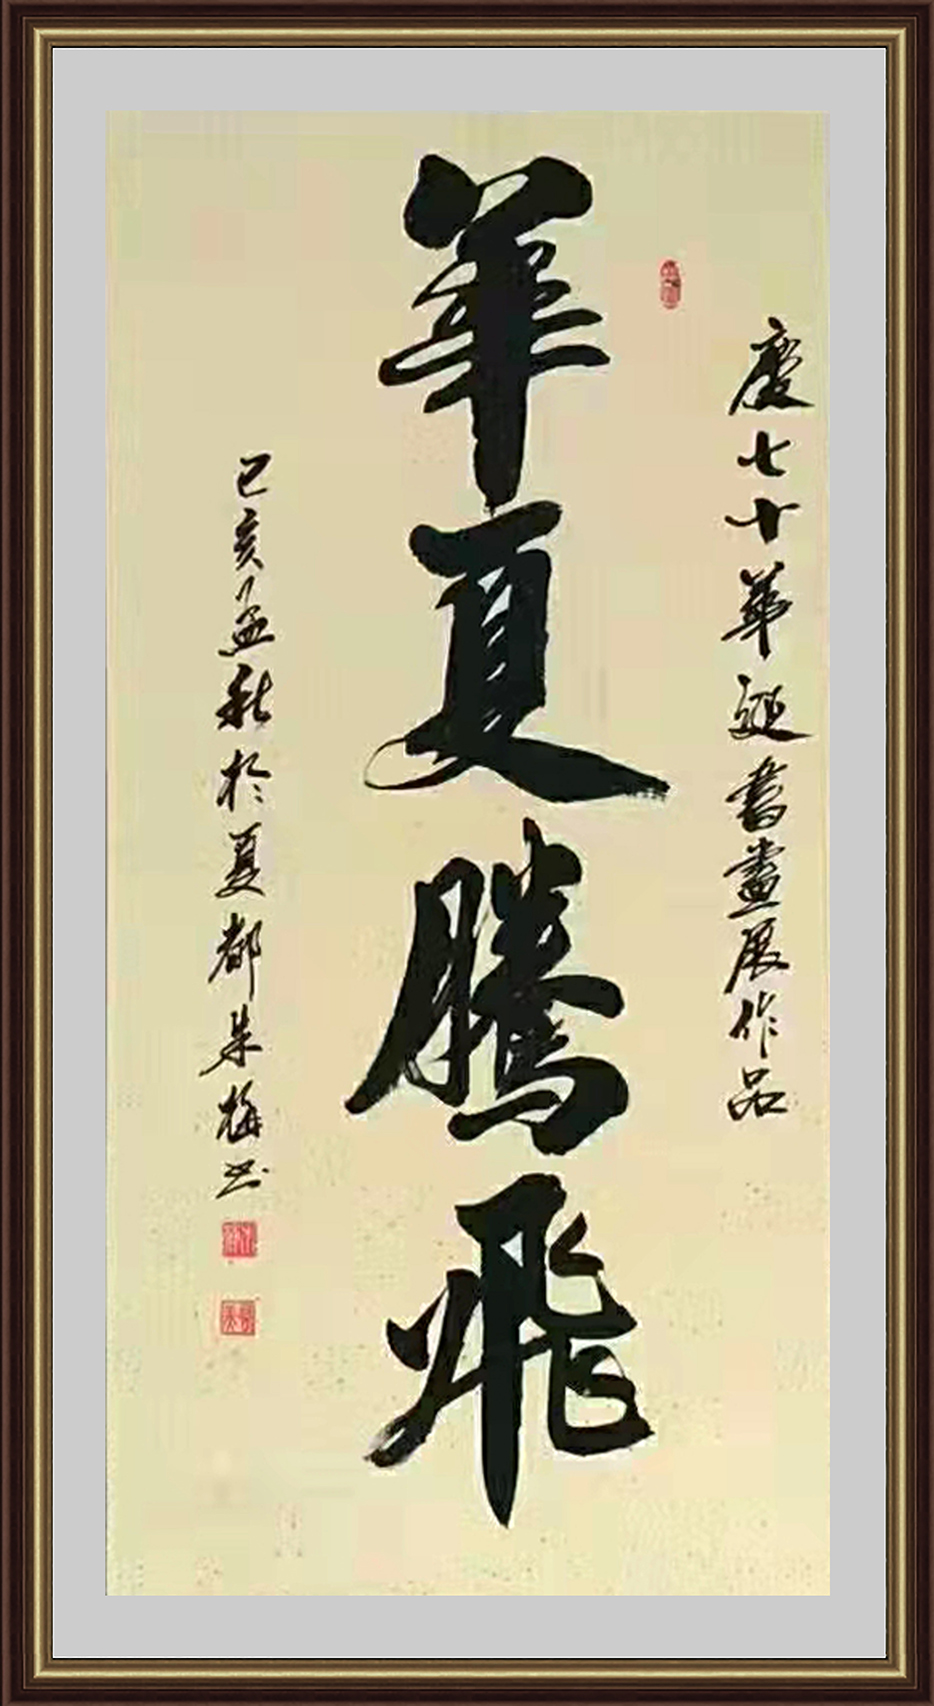 慶七十華誕書畫展作品
華夏騰飛
己亥孟秋於夏都朱梅书